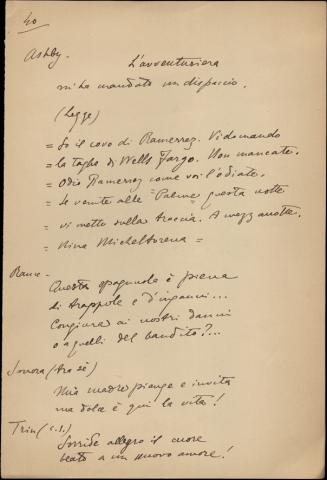 40
Ashby - L'avventuriera
mi ha mandato un dispaccio.
(Legge)
= So il covo di Ramerrez. Vi domando
= la taglia di Wells Fargo. Non mancate.
= Odio Ramerrez come voi l'odiate.
= Se venite alle "Palme" questa notte
= vi metto sulla traccia. A mezzanotte.
= Nina Micheltorena =
Rance -
Questa spagnuola è piena
di trappole e d'inganni...
Congiura ai nostri danni
o a quelli del bandito?...
Sonora (tra sè)
Mia madre piange e invita
ma dolce è qui la vita!
Trin (c.s.)
Sorride allegro il cuore
beato a un nuovo amore!